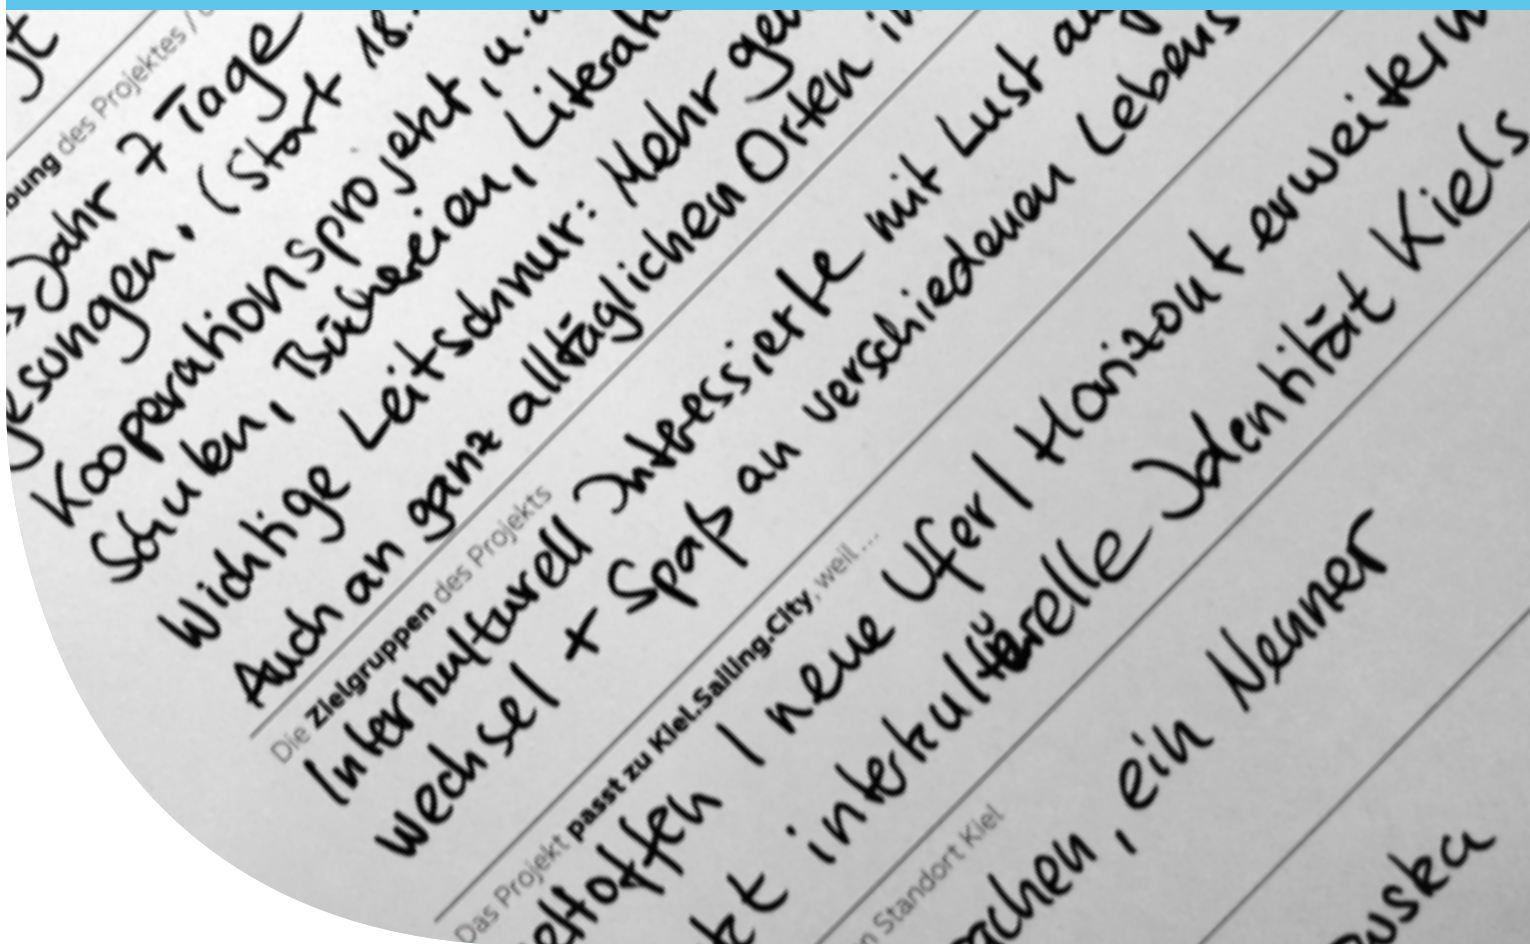 gt
bung des Projektes /
s Jahr 7 Tage
esungen, (Start 18.
Kooperationsprojekt, u.a
Schulen, Büchereien, Literat
Wichtige Leitschnur: Mehr gel
Auch an ganz alltäglichen Orten in
Die Zielgruppen des Projekts
Interkulturell Interessierte mit Lust au
wechsel + Spaß an verschiedenen Lebens
Das Projekt passt zu Kiel.Sailing.City, weil...
eltoffen / neue Ufer / Horizont erweitern
kt interkulturelle Identität Kiels
n Standort Kiel
achen, ein Nenner
uska